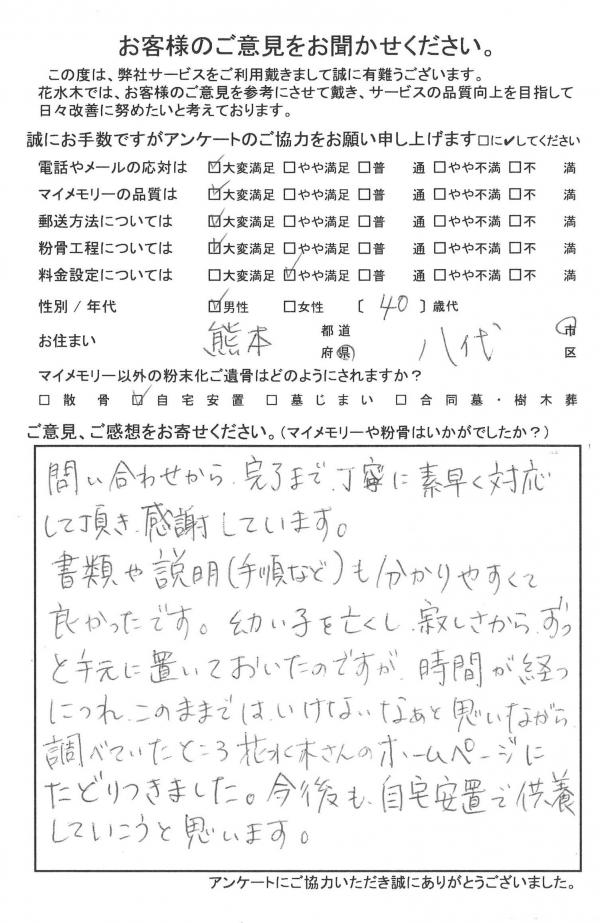 お客様のご意見をお聞かせください。
この度は、弊社サービスをご利用戴きまして誠に有難うございます。
花水木では、お客様のご意見を参考にさせて戴き、サービスの品質向上を目指して
日々改善に努めたいと考えております。
誠にお手数ですがアンケートのご協力をお願い申し上げます□に✔してください
電話やメールの応対は ☑大変満足 □やや満足 □普 通 □やや不満 □不 満
マイメモリーの品質は ☑大変満足 □やや満足 □普 通 □やや不満 □不 満
郵送方法については ☑大変満足 □やや満足 □普 通 □やや不満 □不 満
粉骨工程については ☑大変満足 □やや満足 □普 通 □やや不満 □不 満
料金設定については □大変満足 ☑やや満足 □普 通 □やや不満 □不 満
性別 / 年代 ☑男性 □女性 〔 40 〕歳代
お住まい 熊本 都道府県 八代 市区
マイメモリー以外の粉末化ご遺骨はどのようにされますか？
□ 散 骨 ☑ 自宅安置 □ 墓じまい □ 合同墓・樹木葬
ご意見、ご感想をお寄せください。(マイメモリーや粉骨はいかがでしたか？)
問い合わせから、完了まで、丁寧に素早く対応
して頂き、感謝しています。
書類や説明(手順など)も分かりやすくて
良かったです。幼い子を亡くし、寂しさから、ずっ
と手元に置いておいたのですが、時間が経つ
につれ、このままではいけないなぁと思いながら
調べていたところ花水木さんのホームページに
たどりつきました。今後も、自宅安置で供養
していこうと思います。
アンケートにご協力いただき誠にありがとうございました。